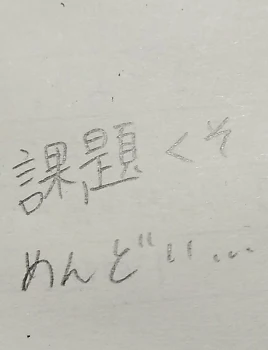 課題くそ
めんどいい...